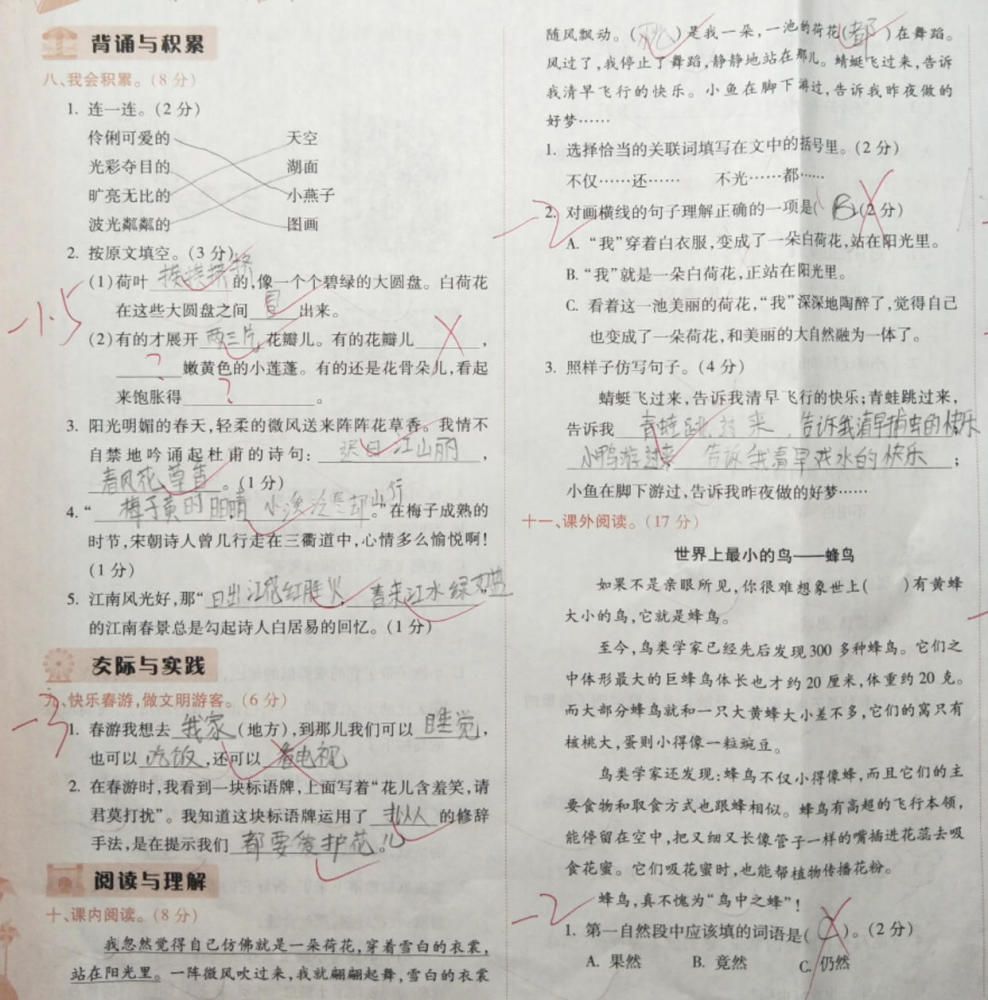 背诵与积累
八、我会积累。(8分)
1. 连一连。(2分)
伶俐可爱的 天空
光彩夺目的 湖面
旷亮无比的 小燕子
波光粼粼的 图画
2. 按原文填空。(3分)
(1)荷叶 挨挨挤挤 的,像一个个碧绿的大圆盘。白荷花
在这些大圆盘之间 冒 出来。
(2)有的才展开 两三片 花瓣儿。有的花瓣儿
? 嫩黄色的小莲蓬。有的还是花骨朵儿,看起
来饱胀得 ? 。
-1.5
3. 阳光明媚的春天,轻柔的微风送来阵阵花草香。我情不
自禁地吟诵起杜甫的诗句: 迟日江山丽 ,
春风花草香 。(1分)
4. “ 梅子黄时日日晴 小溪泛尽却山行 ”在梅子成熟的
时节,宋朝诗人曾几行走在三衢道中,心情多么愉悦啊!
(1分)
5. 江南风光好,那“ 日出江花红胜火 春来江水绿如蓝
的江南春景总是勾起诗人白居易的回忆。(1分)
交际与实践
九、快乐春游,做文明游客。(6分)
-3
1. 春游我想去 我家 (地方),到那儿我们可以 睡觉 ,
也可以 吃饭 ,还可以 看电视
2. 在春游时,我看到一块标语牌,上面写着“花儿含羞笑,请
君莫打扰”。我知道这块标语牌运用了 的修辞
手法,是在提示我们 都要爱护花儿
阅读与理解
十、课内阅读。(8分)
我忽然觉得自己仿佛就是一朵荷花,穿着雪白的衣裳,
站在阳光里。一阵微风吹过来,我就翩翩起舞,雪白的衣裳
随风飘动。( )是我一朵,一池的荷花( 都 )在舞蹈。
风过了,我停止了舞蹈,静静地站在那儿。蜻蜓飞过来,告诉
我清早飞行的快乐。小鱼在脚下游过,告诉我昨夜做的
好梦……
1. 选择恰当的关联词填写在文中的括号里。(2分)
不仅……还…… 不光……都……
-2
2. 对画横线的句子理解正确的一项是( B )(2分)
A. “我”穿着白衣服,变成了一朵白荷花,站在阳光里。
B. “我”就是一朵白荷花,正站在阳光里。
C. 看着这一池美丽的荷花,“我”深深地陶醉了,觉得自己
也变成了一朵荷花,和美丽的大自然融为一体了。
3. 照样子仿写句子。(4分)
蜻蜓飞过来,告诉我清早飞行的快乐;青蛙跳过来,
告诉我 青蛙跳过来,告诉我清早捕虫的快乐
小鸭游过来 告诉我清早戏水的快乐 ;
小鱼在脚下游过,告诉我昨夜做的好梦……
十一、课外阅读。(17分)
世界上最小的鸟——蜂鸟
如果不是亲眼所见,你很难想象世上( )有黄蜂
大小的鸟,它就是蜂鸟。
至今,鸟类学家已经先后发现300多种蜂鸟。它们之
中体形最大的巨蜂鸟体长也才约20厘米,体重约20克。
而大部分蜂鸟就和一只大黄蜂大小差不多,它们的窝只有
核桃大,蛋则小得像一粒豌豆。
鸟类学家还发现:蜂鸟不仅小得像蜂,而且它们的主
要食物和取食方式也跟蜂相似。蜂鸟有高超的飞行本领,
能停留在空中,把又细又长像管子一样的嘴插进花蕊去吸
食花蜜。它们吸花蜜时,也能帮植物传播花粉。
蜂鸟,真不愧为“鸟中之蜂”!
-2
1. 第一自然段中应该填的词语是( C )。(2分)
A. 果然 B. 竟然 C. 仍然